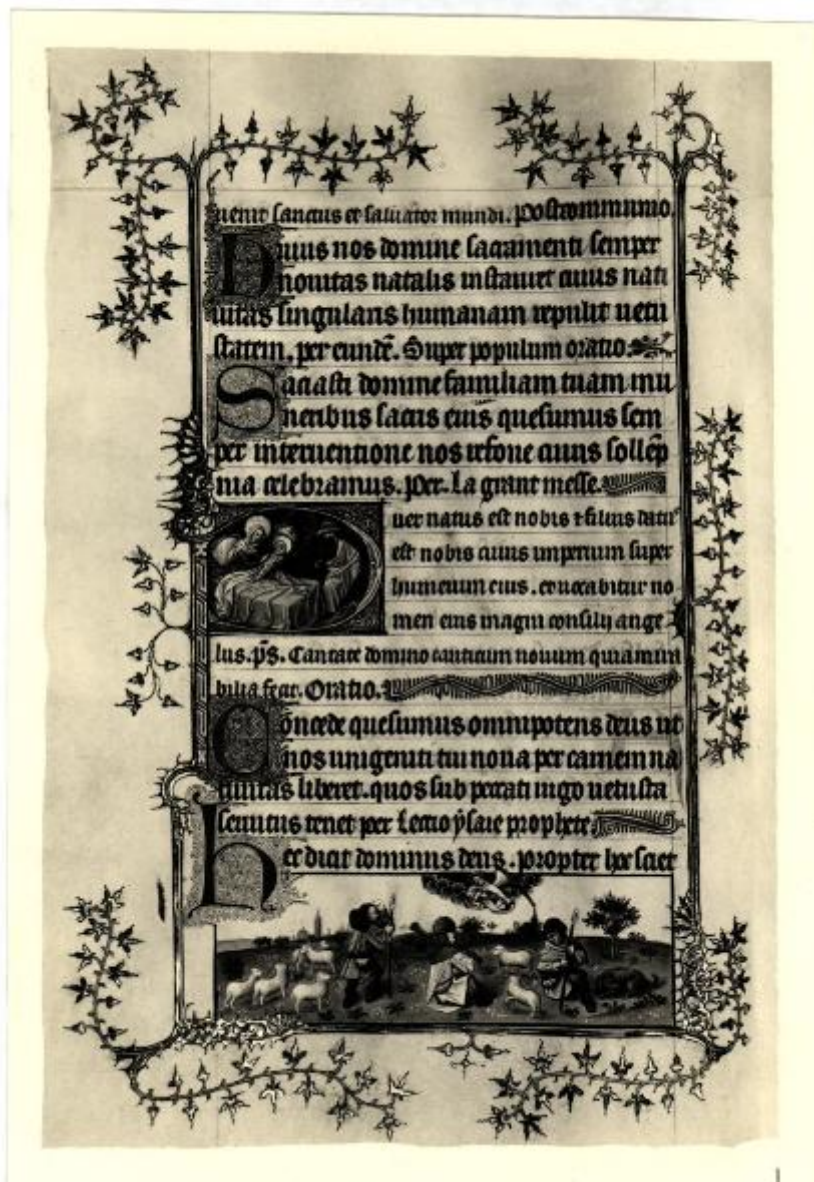 uenit sanctus et saluator mundi. Postcommunio.
Huius nos domine sacramenti semper
nouitas natalis instauret cuius nati
uitas singularis humanam repulit uetu
statem. per eundẽ. Super populum oratio.
Saciasti domine familiam tuam mu
neribus sacris eius quesumus sem
per interuentione nos refoue cuius sollẽp
nia celebramus. per. La grant messe.
Puer natus est nobis et filius datus
est nobis cuius imperium super
humerum eius. et uocabitur no
men eius magni consilij ange
lus. p̃s. Cantate domino canticum nouum quia mira
bilia fecit. Oratio.
Concede quesumus omnipotens deus ut
nos unigeniti tui noua per carnem na
tiuitas liberet. quos sub peccati iugo uetusta
seruitus tenet per Lectio ysaie prophete
Hec dicit dominus deus. propter hoc sciet